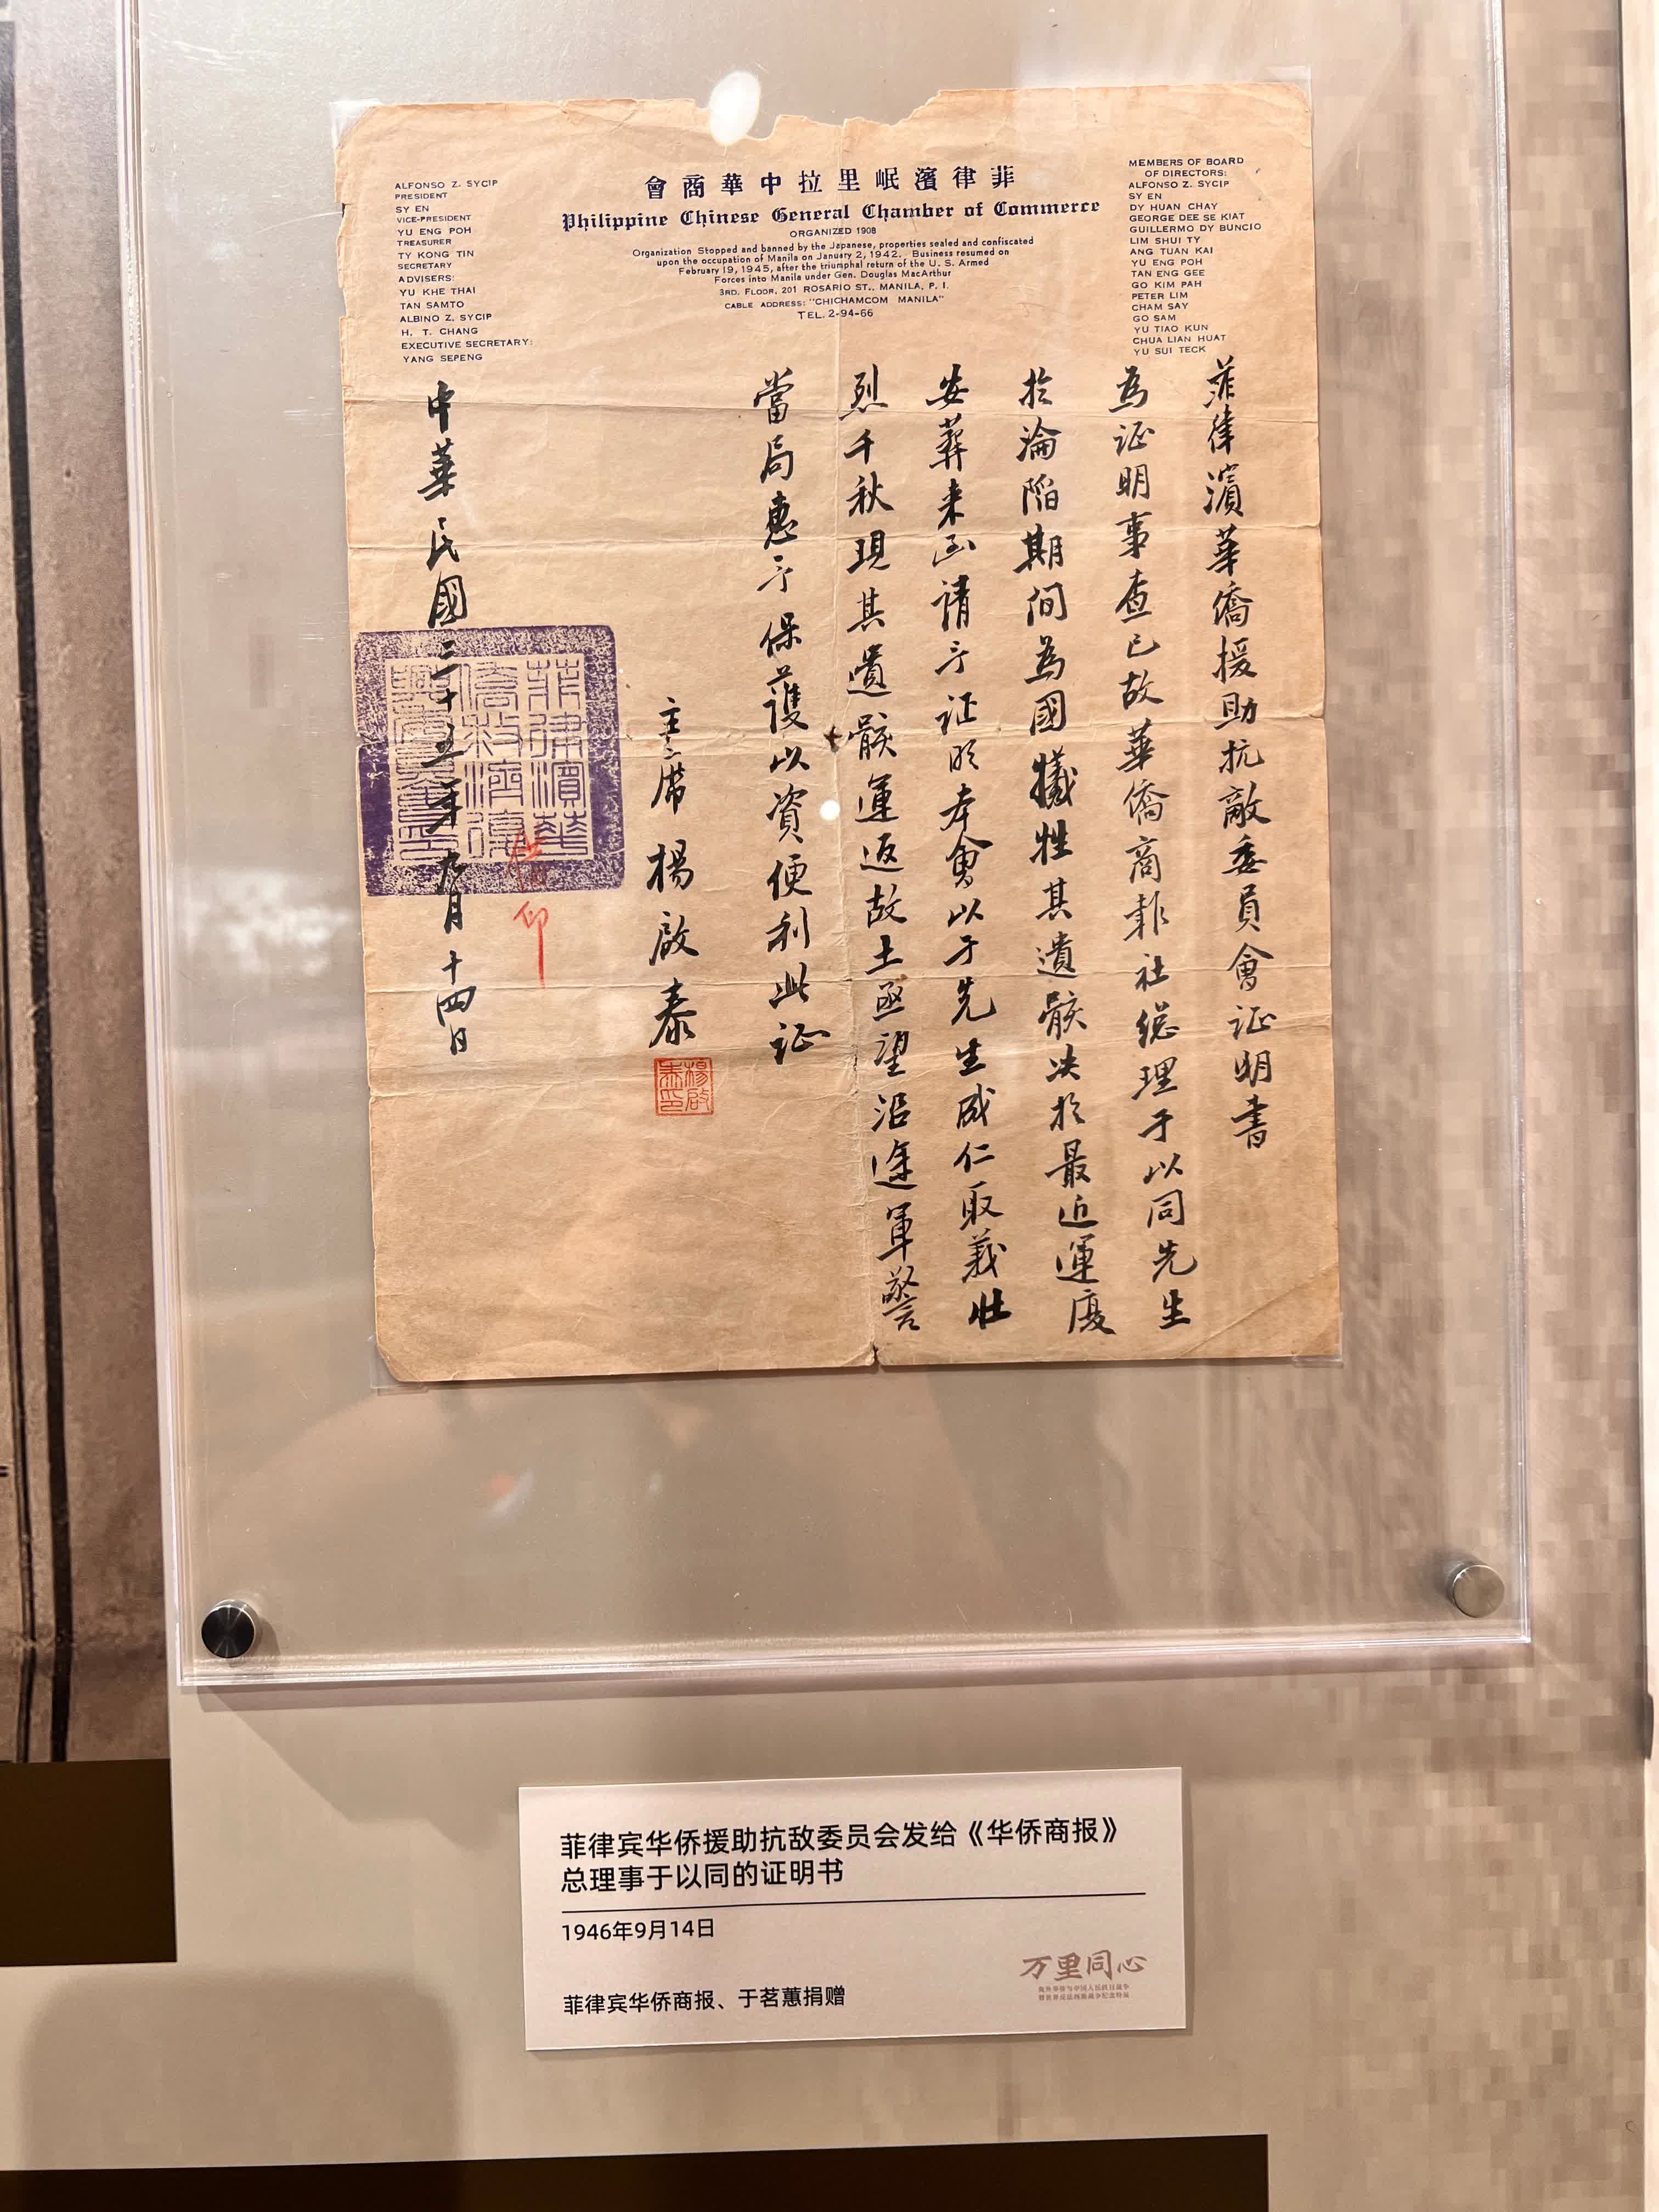 會商華中拉里岷濱律菲
Philippine Chinese General Chamber of Commerce
ORGANIZED 1908
Organization Stopped and banned by the Japanese, properties sealed and confiscated
upon the occupation of Manila on January 2, 1942. Business resumed on
February 19, 1945, after the triumphal return of the U. S. Armed
Forces into Manila under Gen. Douglas MacArthur
3RD. FLOOR, 201 ROSARIO ST., MANILA, P. I.
CABLE ADDRESS: "CHICHAMCOM MANILA"
TEL. 2-94-66
ALFONSO Z. SYCIP
PRESIDENT
SY EN
VICE-PRESIDENT
YU ENG POH
TREASURER
TY KONG TIN
SECRETARY
ADVISERS:
YU KHE THAI
TAN SAMTO
ALBINO Z. SYCIP
H. T. CHANG
EXECUTIVE SECRETARY:
YANG SEPENG
MEMBERS OF BOARD
OF DIRECTORS:
ALFONSO Z. SYCIP
SY EN
DY HUAN CHAY
GEORGE DEE SE KIAT
GUILLERMO DY BUNCIO
LIM SHUI TY
ANG TUAN KAI
YU ENG POH
TAN ENG GEE
GO KIM PAH
PETER LIM
CHAM SAY
GO SAM
YU TIAO KUN
CHUA LIAN HUAT
YU SUI TECK
菲律濱華僑援助抗敵委員會证明書
為证明事查已故華僑商報社總理于以同先生
於淪陷期间為國犧牲其遺骸决於最近運廈
安葬来函请予证明本會以于先生成仁取義壮
烈千秋現其遺骸運返故土亟望沿途軍警
當局惠予保護以资便利此证
主席 楊啟泰
中華民國三十五年九月十四日
借印
菲律宾华侨援助抗敌委员会发给《华侨商报》
总理事于以同的证明书
1946年9月14日
菲律宾华侨商报、于茗蕙捐赠
万里同心